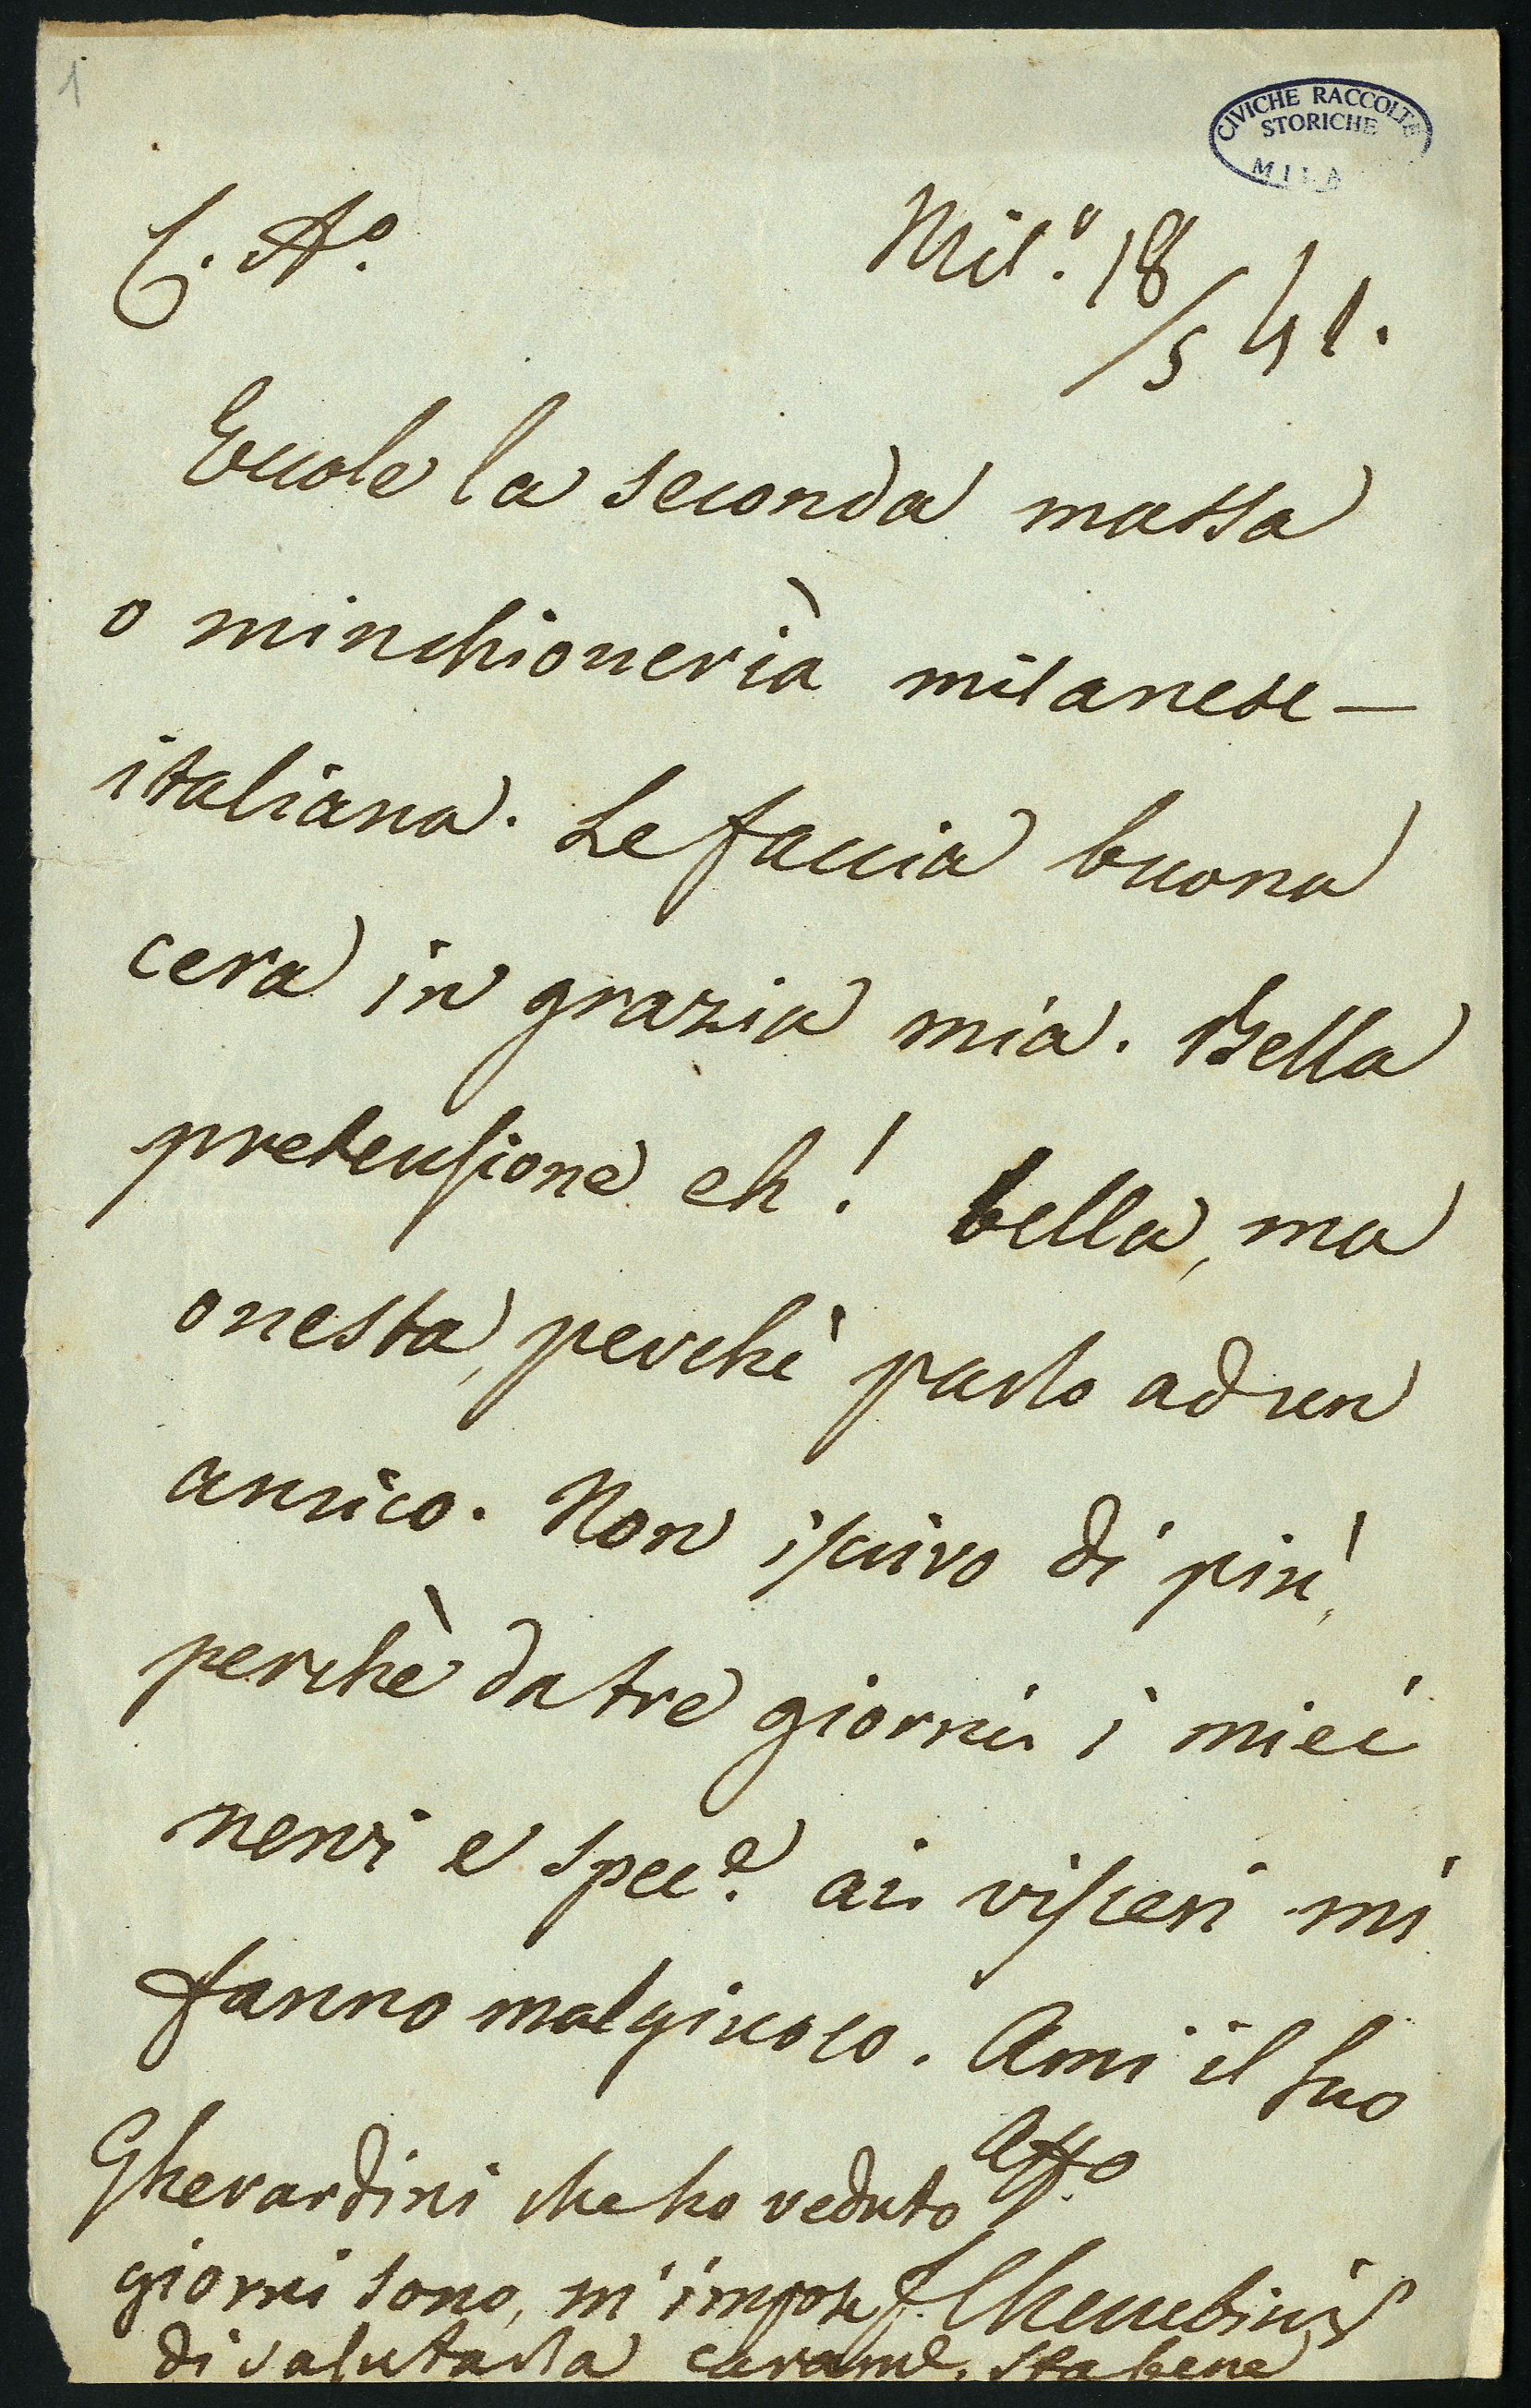 1
CIVICHE RACCOLTE
STORICHE
MILA
C. A.º
Mil.º 18/5 41.
Eccole la seconda massa
o minchioneria milanese-
italiana. Le faccia buona
cera in grazia mia. Bella
pretensione eh! bella, ma
onesta, perchè parlo ad un
amico. Non iscrivo di più,
perchè da tre giorni i miei
nervi e spec.e ai visceri mi
fanno mal giuoco. Ami il suo
Aff.o
F. Cherubini
Gherardini che ho veduto
giorni sono, m'impose
di salutarla caram.e, sta bene